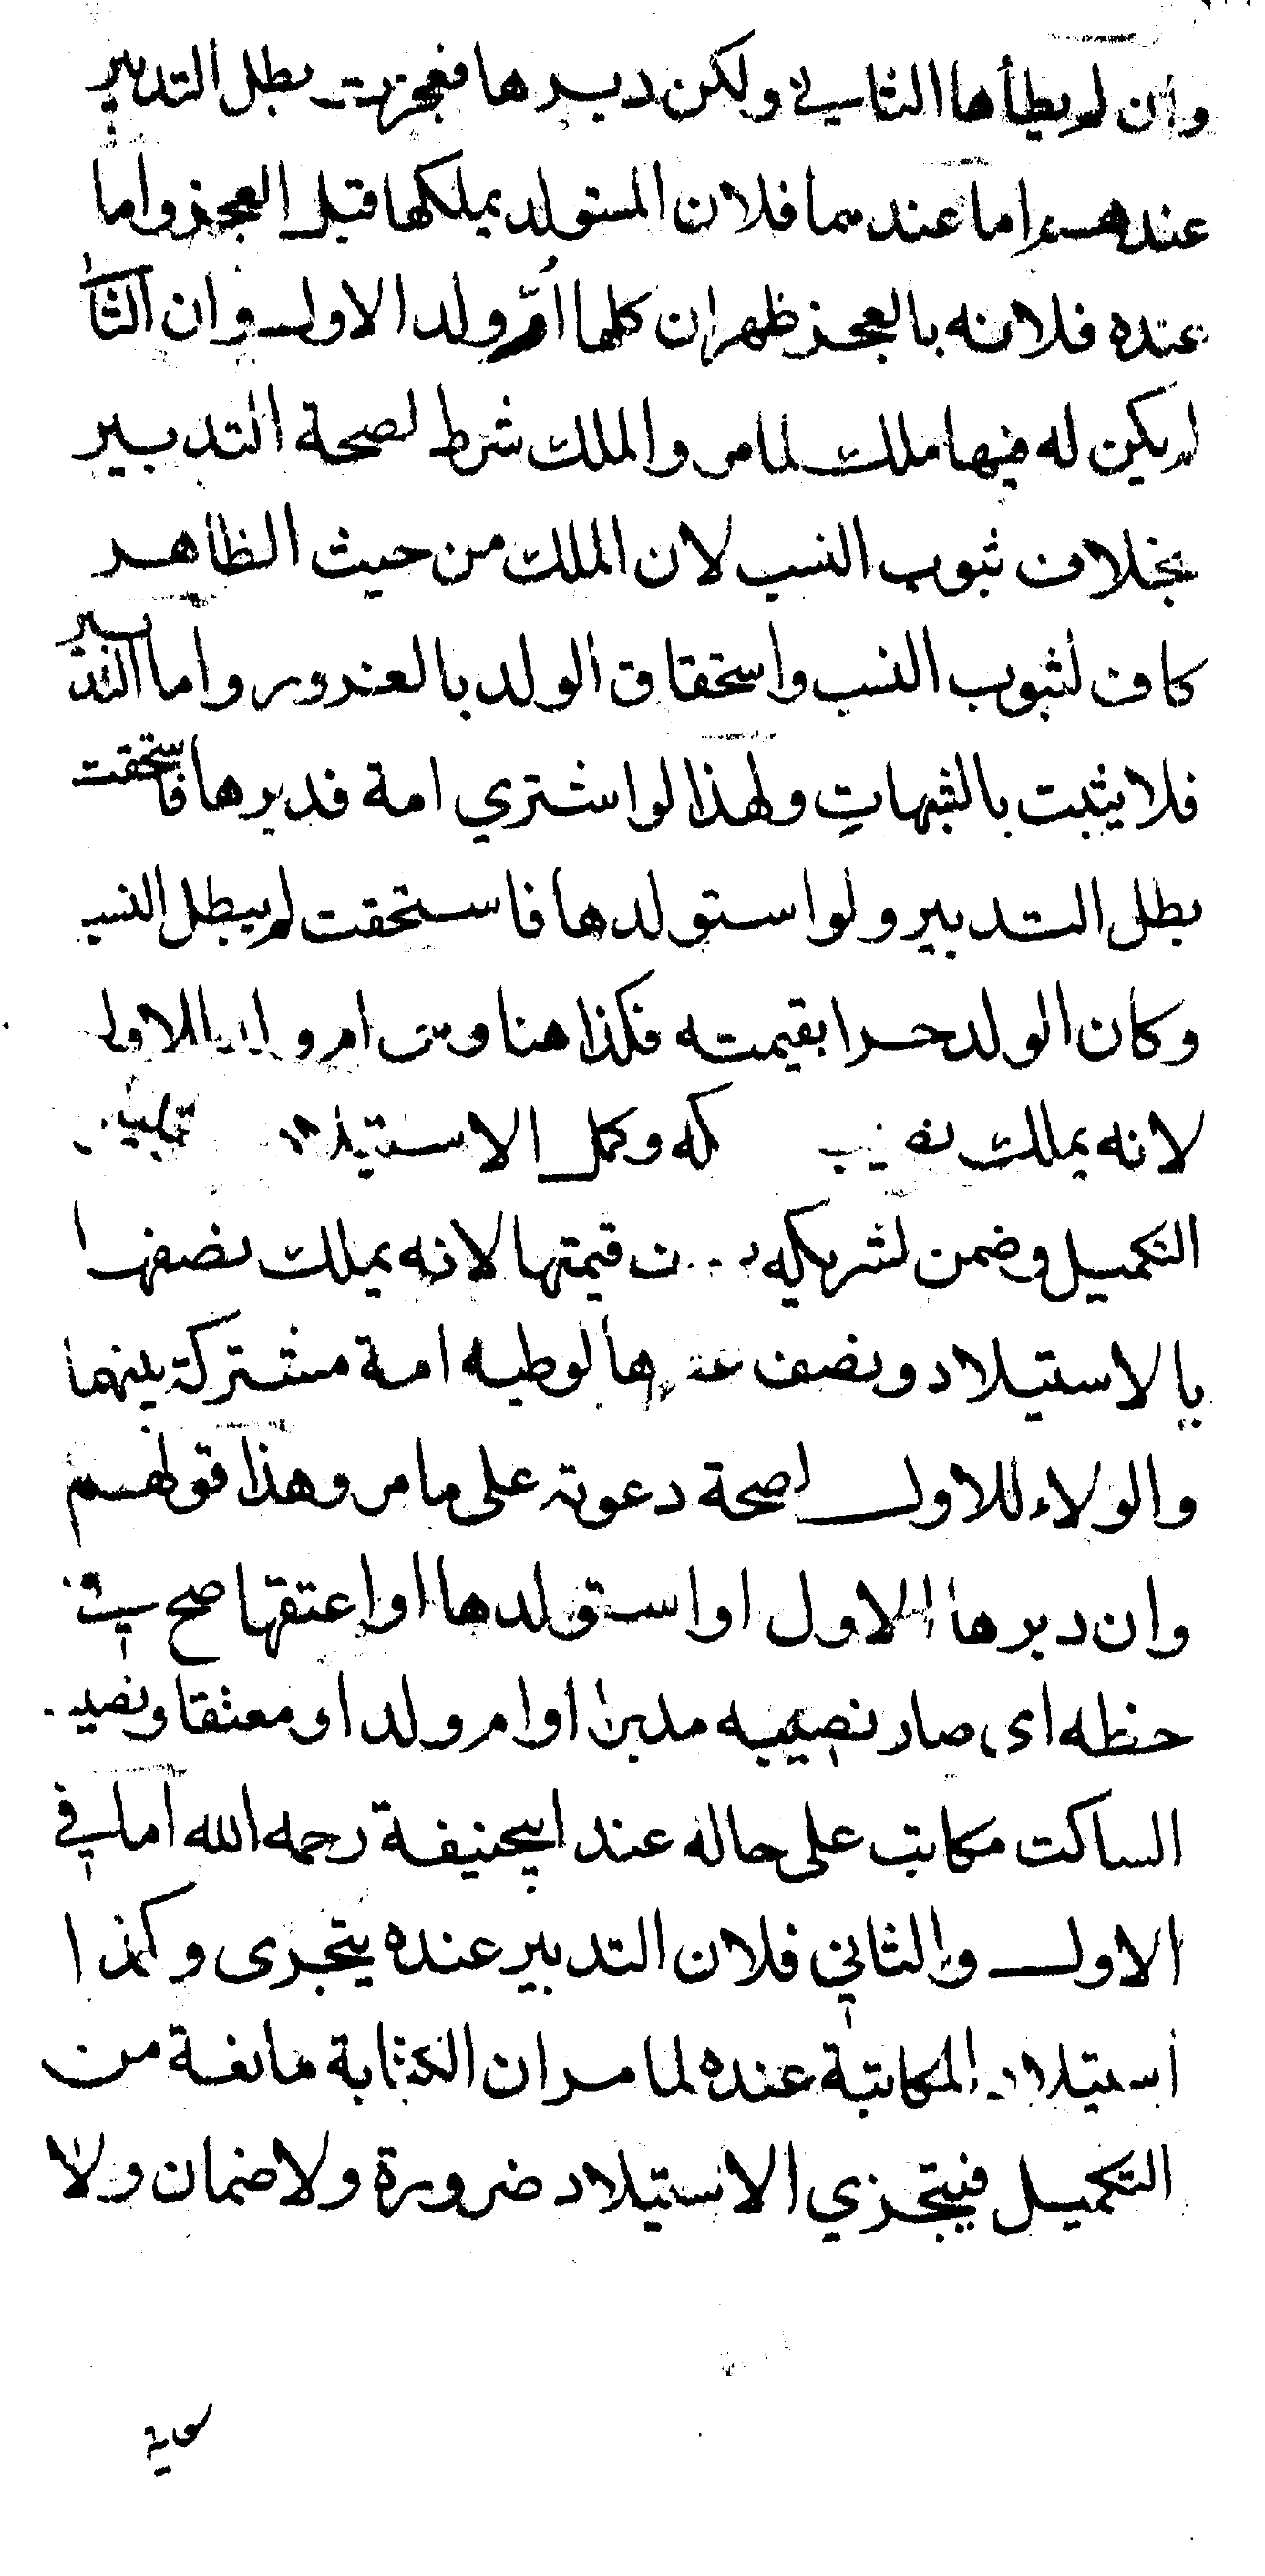 وان لم يطأها الثاني ولكن دبرها فعجزت بطل التدبير
عندهم اما عندهما فلان المستولد يملكها قبل العجز واما
عنده فلانه بالعجز ظهر ان كلها اُمّ ولد الاول وان الثا
لم يكن له فيها ملك لما مر والملك شرط لصحة التدبير
بخلاف ثبوب النسب لان الملك من حيث الظاهر
كاف لثبوب النسب واستحقاق الولد بالغرور واما التدبير
فلا يثبت بالشبهات ولهذا لو اشتري امة فدبرها فاستحقت
بطل التدبير ولو استولدها فاستحقت لم يبطل النسب
وكان الولد حرا بقيمته فكذا هنا وهي ام ولد للاول
لانه يملك نصيب كه وكمل الاستيلاد
التكميل وضمن لشريكه قيمتها لانه يملك نصفها
بالاستيلاد ونصف عقرها لوطيه امة مشتركة بينهما
والولاء للاول لصحة دعوته على ما مر وهذا قولهم
وان دبرها الاول او استولدها او اعتقها صح في
حظه اي صار نصيبه مدبرا او ام ولد او معتقا ونصيب
الساكت مكاتب على حاله عند ابيحنيفة رحمه الله اما في
الاول والثاني فلان التدبير عنده يتجزى وكذا
استيلاد المكاتبة عنده لما مر ان الكتابة مانعة من
التكميل فيتجزي الاستيلاد ضرورة ولا ضمان ولا
سعاية